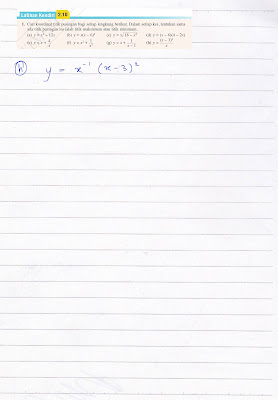 Latihan Kendiri 2.10
1. Cari koordinat titik pusingan bagi setiap lengkung berikut. Dalam setiap kes, tentukan sama
ada titik pusingan itu ialah titik maksimum atau titik minimum.
(a) y = x³ – 12x (b) y = x(x – 6)² (c) y = x√18 – x² (d) y = (x – 6)(4 – 2x)
(e) y = x + 4/x (f) y = x² + 1/x² (g) y = x + 1/x – 1 (h) y = (x – 3)²/x
(h) y = x⁻¹ (x – 3)²